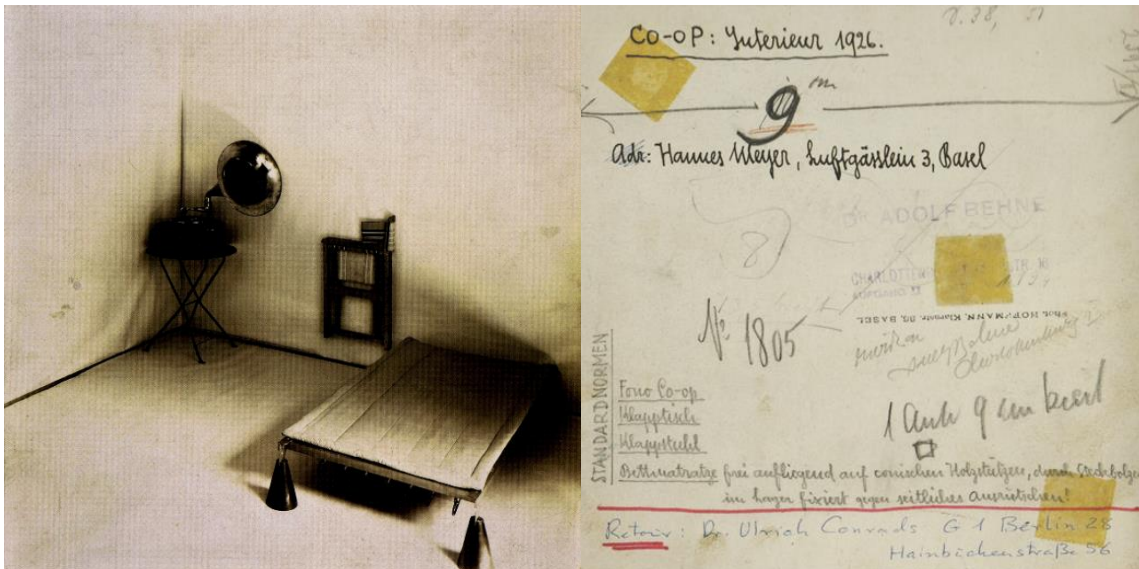 Co-oP: Interieur 1926.
9 m
Adr: Hannes Meyer, Luftgässlein 3, Basel
Dr. ADOLF BEHNE
8
CHARLOTTEN STR.
N: 1805
HOFFMANN, Klarastr. BASEL
STANDARDNORMEN
Fono Co-op
Klapptisch
Klappstuhl
1 Auto 9 cm breit
Bettmatratze frei aufliegend auf conischen Holzstützen, durch Steckbolzen
im Lager fixiert gegen seitliches Ausrutschen!
Retour: Dr. Ulrich Conrads G 1 Berlin 28
Hainbuchenstraße 56